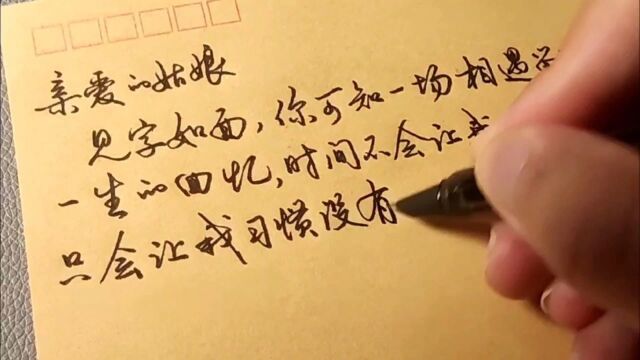 亲爱的姑娘
见字如面，你可知一场相遇
一生的回忆，时间不会让我
只会让我习惯没有